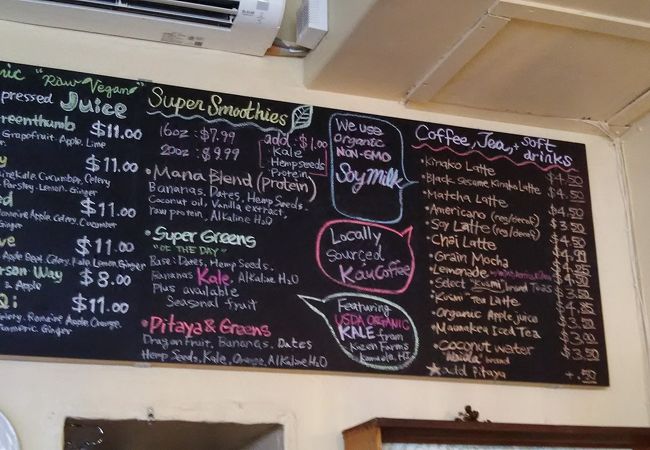 "Raw Vegan"
pressed Juice
Greenthumb $11.00
Grapefruit, Apple, Lime
$11.00
Kale, Cucumber, Celery
Parsley, Lemon, Ginger
$11.00
Romaine Apple Celery, Cucumber
$11.00
Apple Beet Celery Kale Lemon Ginger
Way $8.00
& Apple
$11.00
Celery, Romaine Apple Orange
Turmeric, Ginger
Super Smoothies
16oz : $7.99
20oz : $9.99
add : $1.00
Kale
Hempseeds
Protein
• Mana Blend (Protein)
Bananas, Dates, Hemp Seeds,
Coconut oil, Vanilla extract,
raw protein, Alkaline H2O
• Super Greens
"OF THE DAY"
Base: Dates, Hemp Seeds,
Bananas Kale, Alkaline H2O
Plus available
Seasonal fruit
• Pitaya & Greens
Dragon fruit, Bananas, Dates
Hemp Seeds, Kale, Orange, Alkaline H2O
We use
organic
NON-GMO
Soy Milk
Locally
Sourced
Kau Coffee
Featuring
USDA ORGANIC
KALE from
Farms
Kamuela, HI
Coffee, Tea, + soft
drinks
• Kinako Latte $4.50
• Black Sesame Kinako Latte $4.50
• Matcha Latte
• Americano (reg/decaf)
• Soy Latte (reg/decaf)
• Chai Latte
• Grain Mocha
• Lemonade
• Select "Kusmi" brand Teas
• "Kusmi" Tea Latte
• Organic Apple juice
• Maunakea Iced Tea
• Coconut water
brand
☆ add pitaya + .50